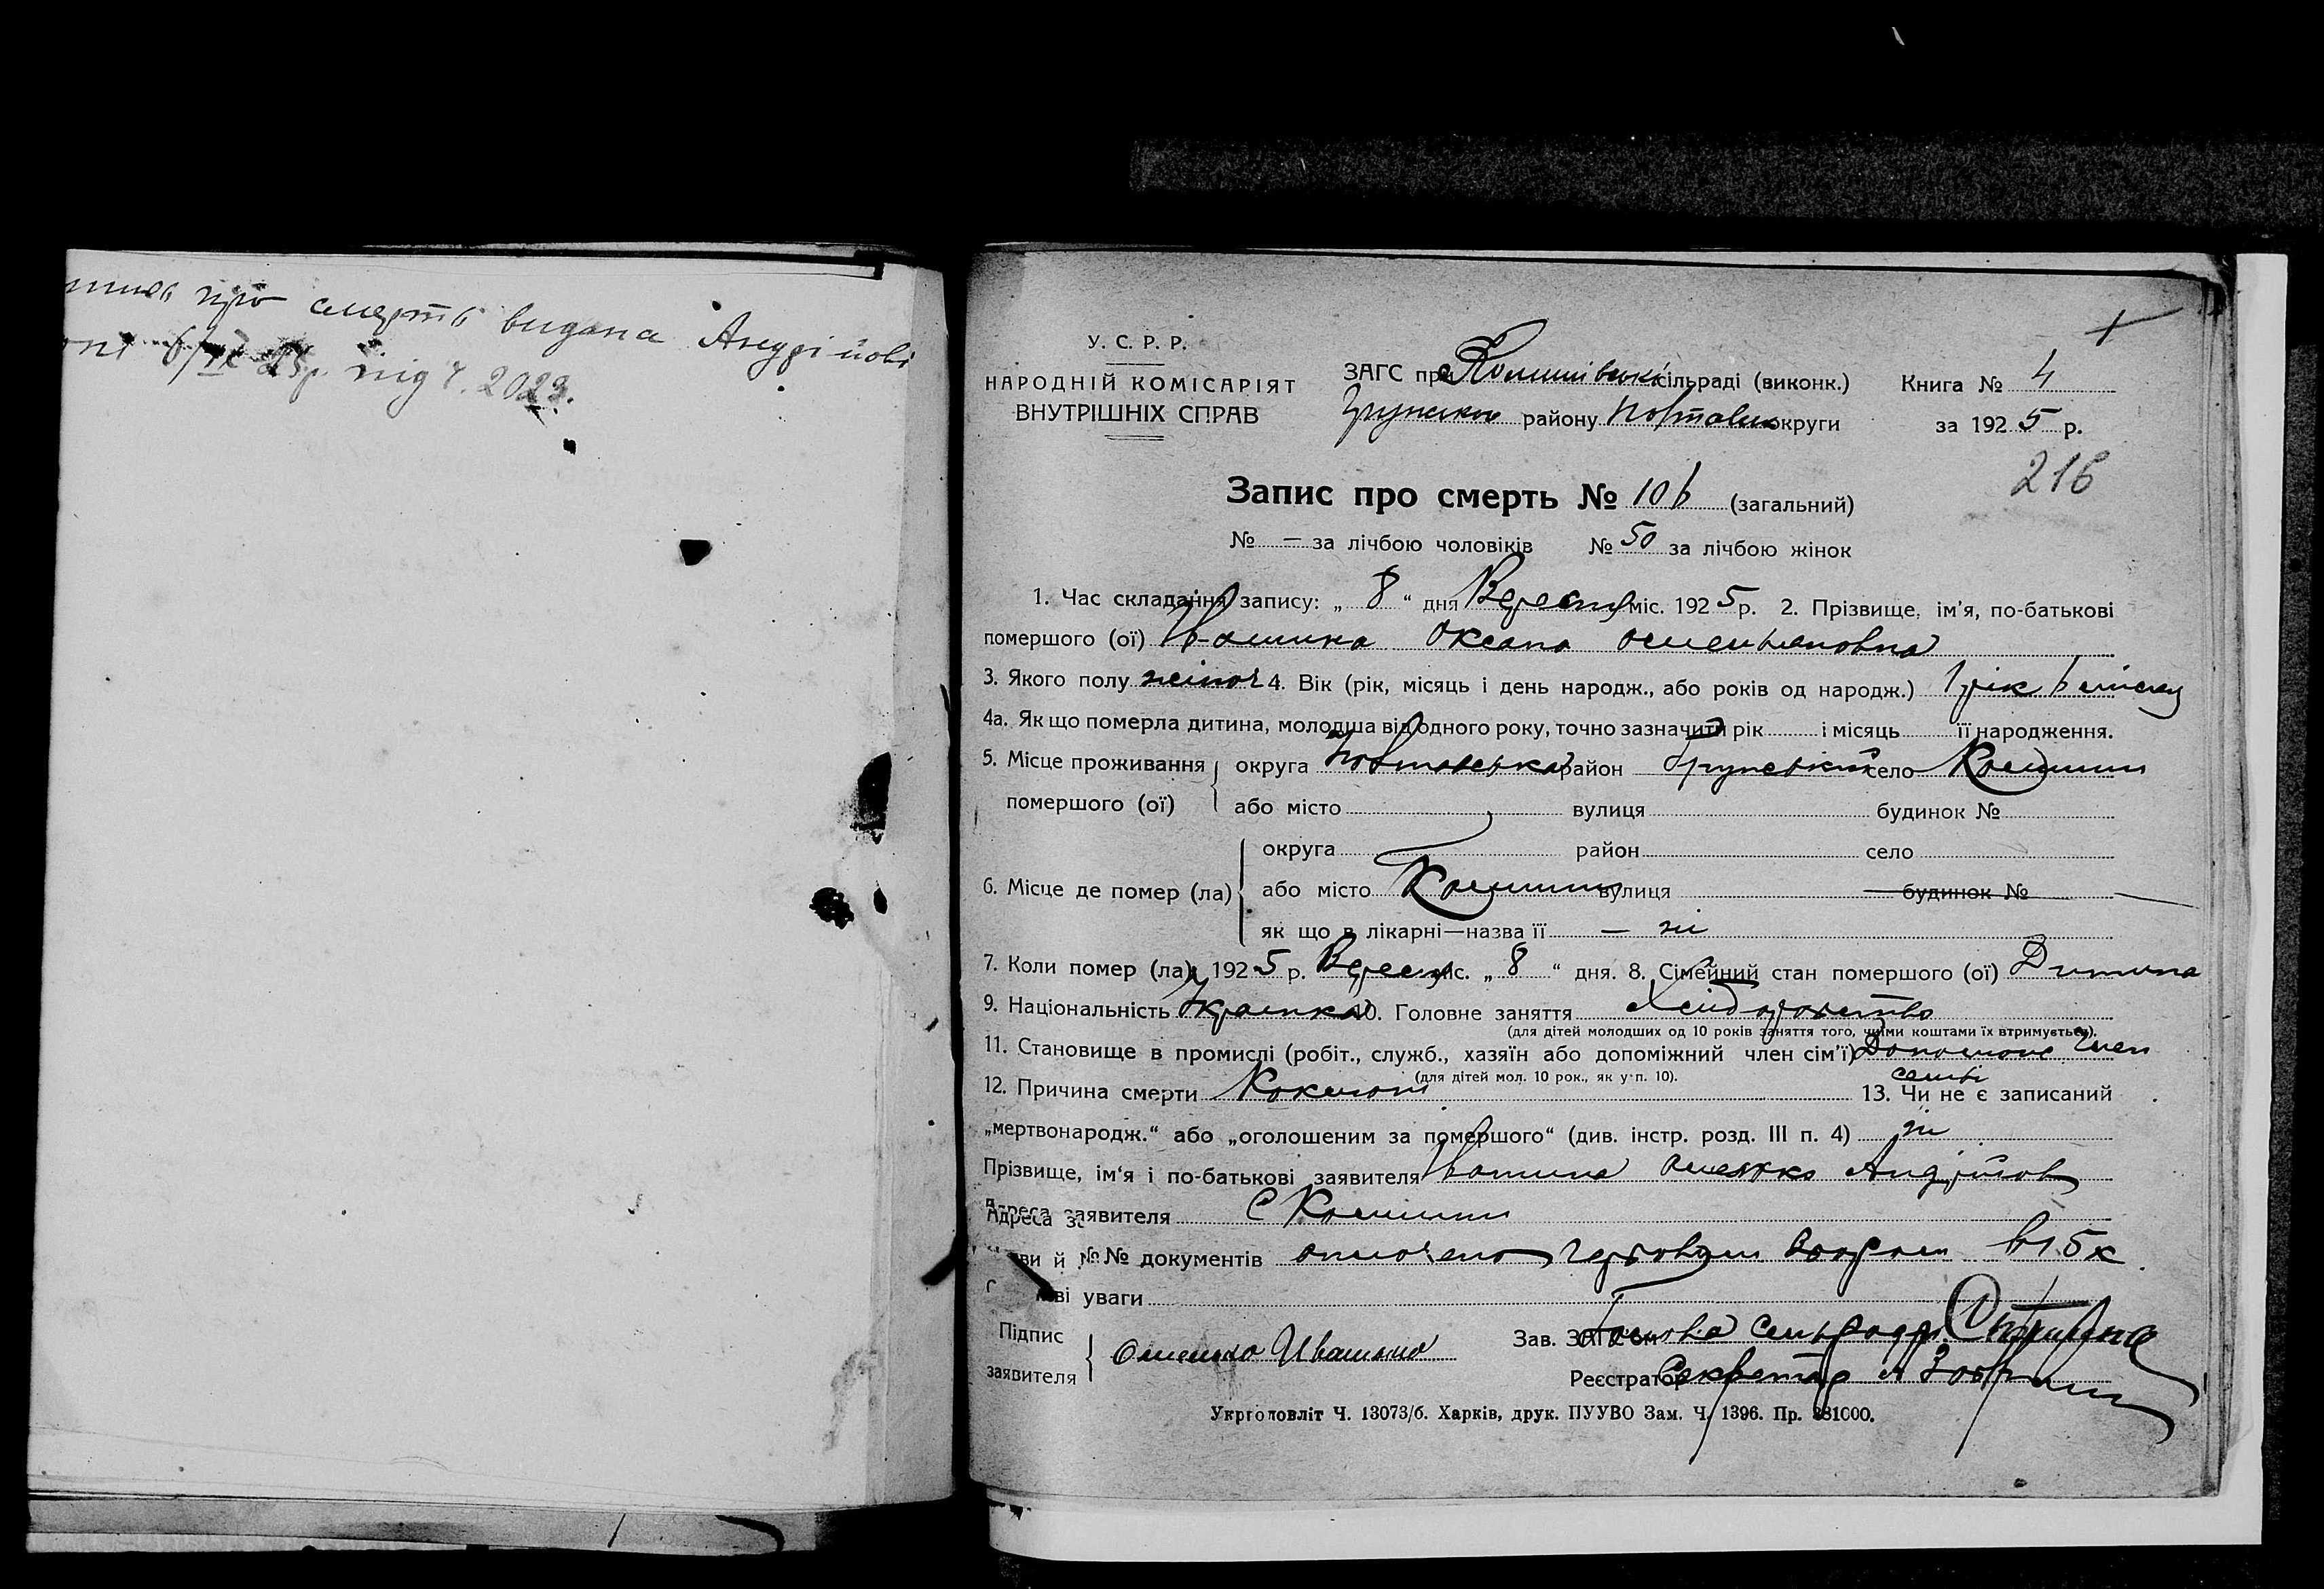 про смерть видана Андрійові
6/IX 25р. під ч. 2023.
У. С. Р. Р.
НАРОДНІЙ КОМІСАРІЯТ
ВНУТРІШНІХ СПРАВ
ЗАГС при сільраді (виконк.)
Грунськом району Полтавськ округи
Книга № 4
за 1925 р.
216
Запис про смерть № 106 (загальний)
№ — за лічбою чоловіків № 50 за лічбою жінок
1. Час складання запису: „ 8 “ дня Вересня міс. 1925 р. 2. Прізвище, ім'я, по-батькові
помершого (ої) Ивашина Оксана Омельяновна
3. Якого полу жіноч 4. Вік (рік, місяць і день народж., або років од народж.) 1 рік 6 місяц
4а. Як що померла дитина, молодша від одного року, точно зазначити рік і місяць її народження.
5. Місце проживання помершого (ої) округа Полтавська район Грунський село Комиши
або місто вулиця будинок №
6. Місце де помер (ла) округа район село
або місто Комиши вулиця будинок №
як що в лікарні—назва її — ні
7. Коли помер (ла) 1925 р. Вересн міс. „ 8 “ дня. 8. Сімейний стан помершого (ої) Дитина
9. Національність Украинка 10. Головне заняття
(для дітей молодших од 10 років заняття того, чиїми коштами їх втримується).
11. Становище в промислі (робіт., служб., хазяїн або допоміжний член сім'ї) Допоможе член
семьї
(для дітей мол. 10 рок., як у п. 10).
12. Причина смерти Коклюш 13. Чи не є записаний
„мертвонародж.“ або „оголошеним за помершого“ (див. інстр. розд. III п. 4) ні
Прізвище, ім'я і по-батькові заявителя Ивашина Омелько Андрійов
Адреса заявителя С Комиши
ви й №№ документів оплочено гербовим збором 15 к
ві уваги
Підпис заявителя Омелько Ивашина
Зав. ЗАГС'ом Голова сельради
Реєстратор Секретар
Укрголовліт Ч. 13073/б. Харків, друк. ПУУВО Зам. Ч. 1396. Пр. 881000.